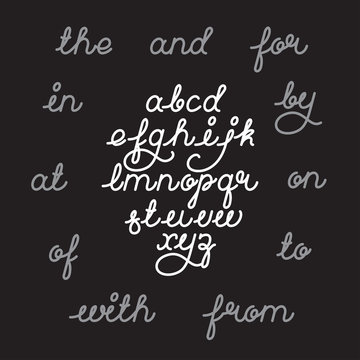 the and for
in
by
abcd
efghijk
lmnopqr
stuvw
xyz
at
on
of
to
with from